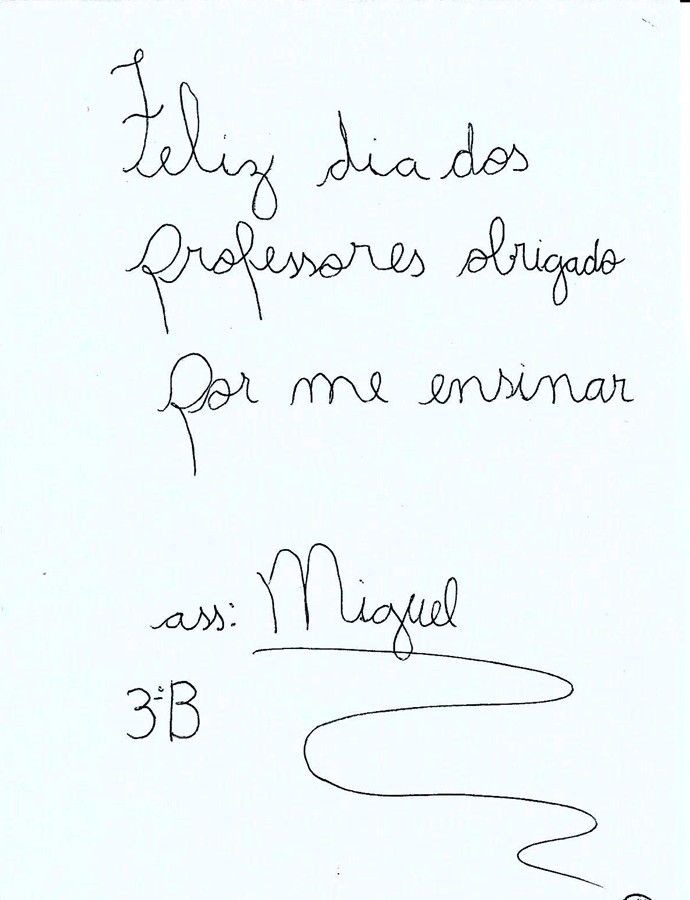 Feliz dia dos
professores obrigado
por me ensinar
ass: Miguel
3ºB